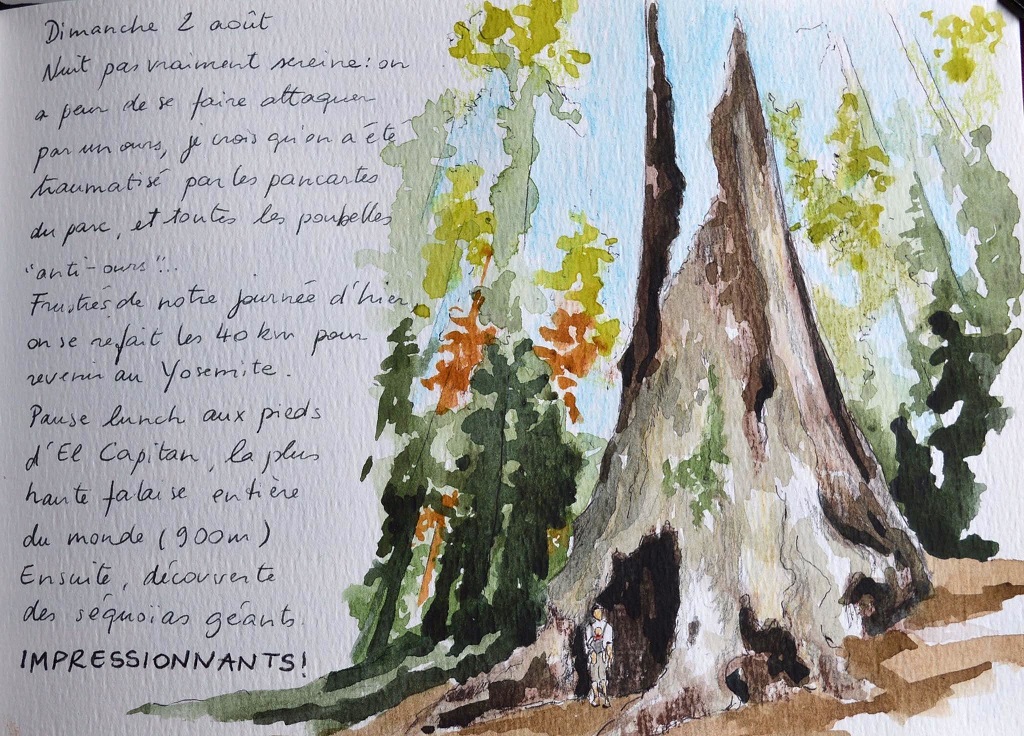 Dimanche 2 août
Nuit pas vraiment sereine : on
a peur de se faire attaquer
par un ours, je crois qu'on a été
traumatisé par les pancartes
du parc, et toutes les poubelles
"anti-ours"...
Frustrés de notre journée d'hier,
on se refait les 40 km pour
revenir au Yosemite.
Pause lunch aux pieds
d'El Capitan, la plus
haute falaise entière
du monde (900m)
Ensuite, découverte
des séquoïas géants.
IMPRESSIONNANTS!